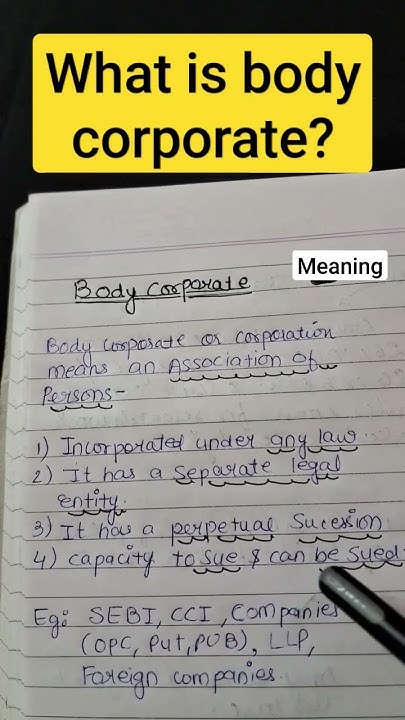 What is body
corporate?
Meaning
Body Corporate
Body corporate or corporation
means an Association of
Persons-
1) Incorporated under any law.
2) It has a separate legal
entity.
3) It has a perpetual Sucession
4) capacity to sue & can be sued.
Eg: SEBI, CCI, Companies
(OPC, Pvt, PUB), LLP,
Foreign companies.